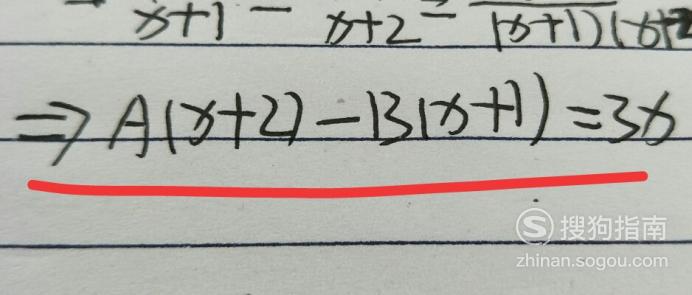 x+1 - x+2 = (x+1)(x+2
⇒ A(x+2) - B(x+1) = 3x
S 搜狗指南
zhinan.sogou.com